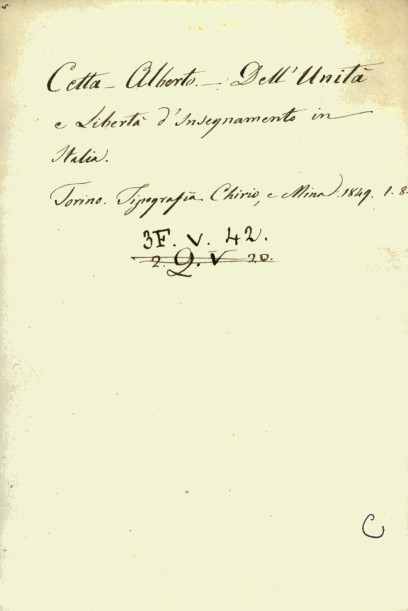 Cetta - Alberto. - Dell'Unità
e Libertà d'Insegnamento in
Italia.
Torino. Tipografia Chirio, e Mina. 1849. 1. 8.
3F. V. 42.
2. Q. V 20.
C